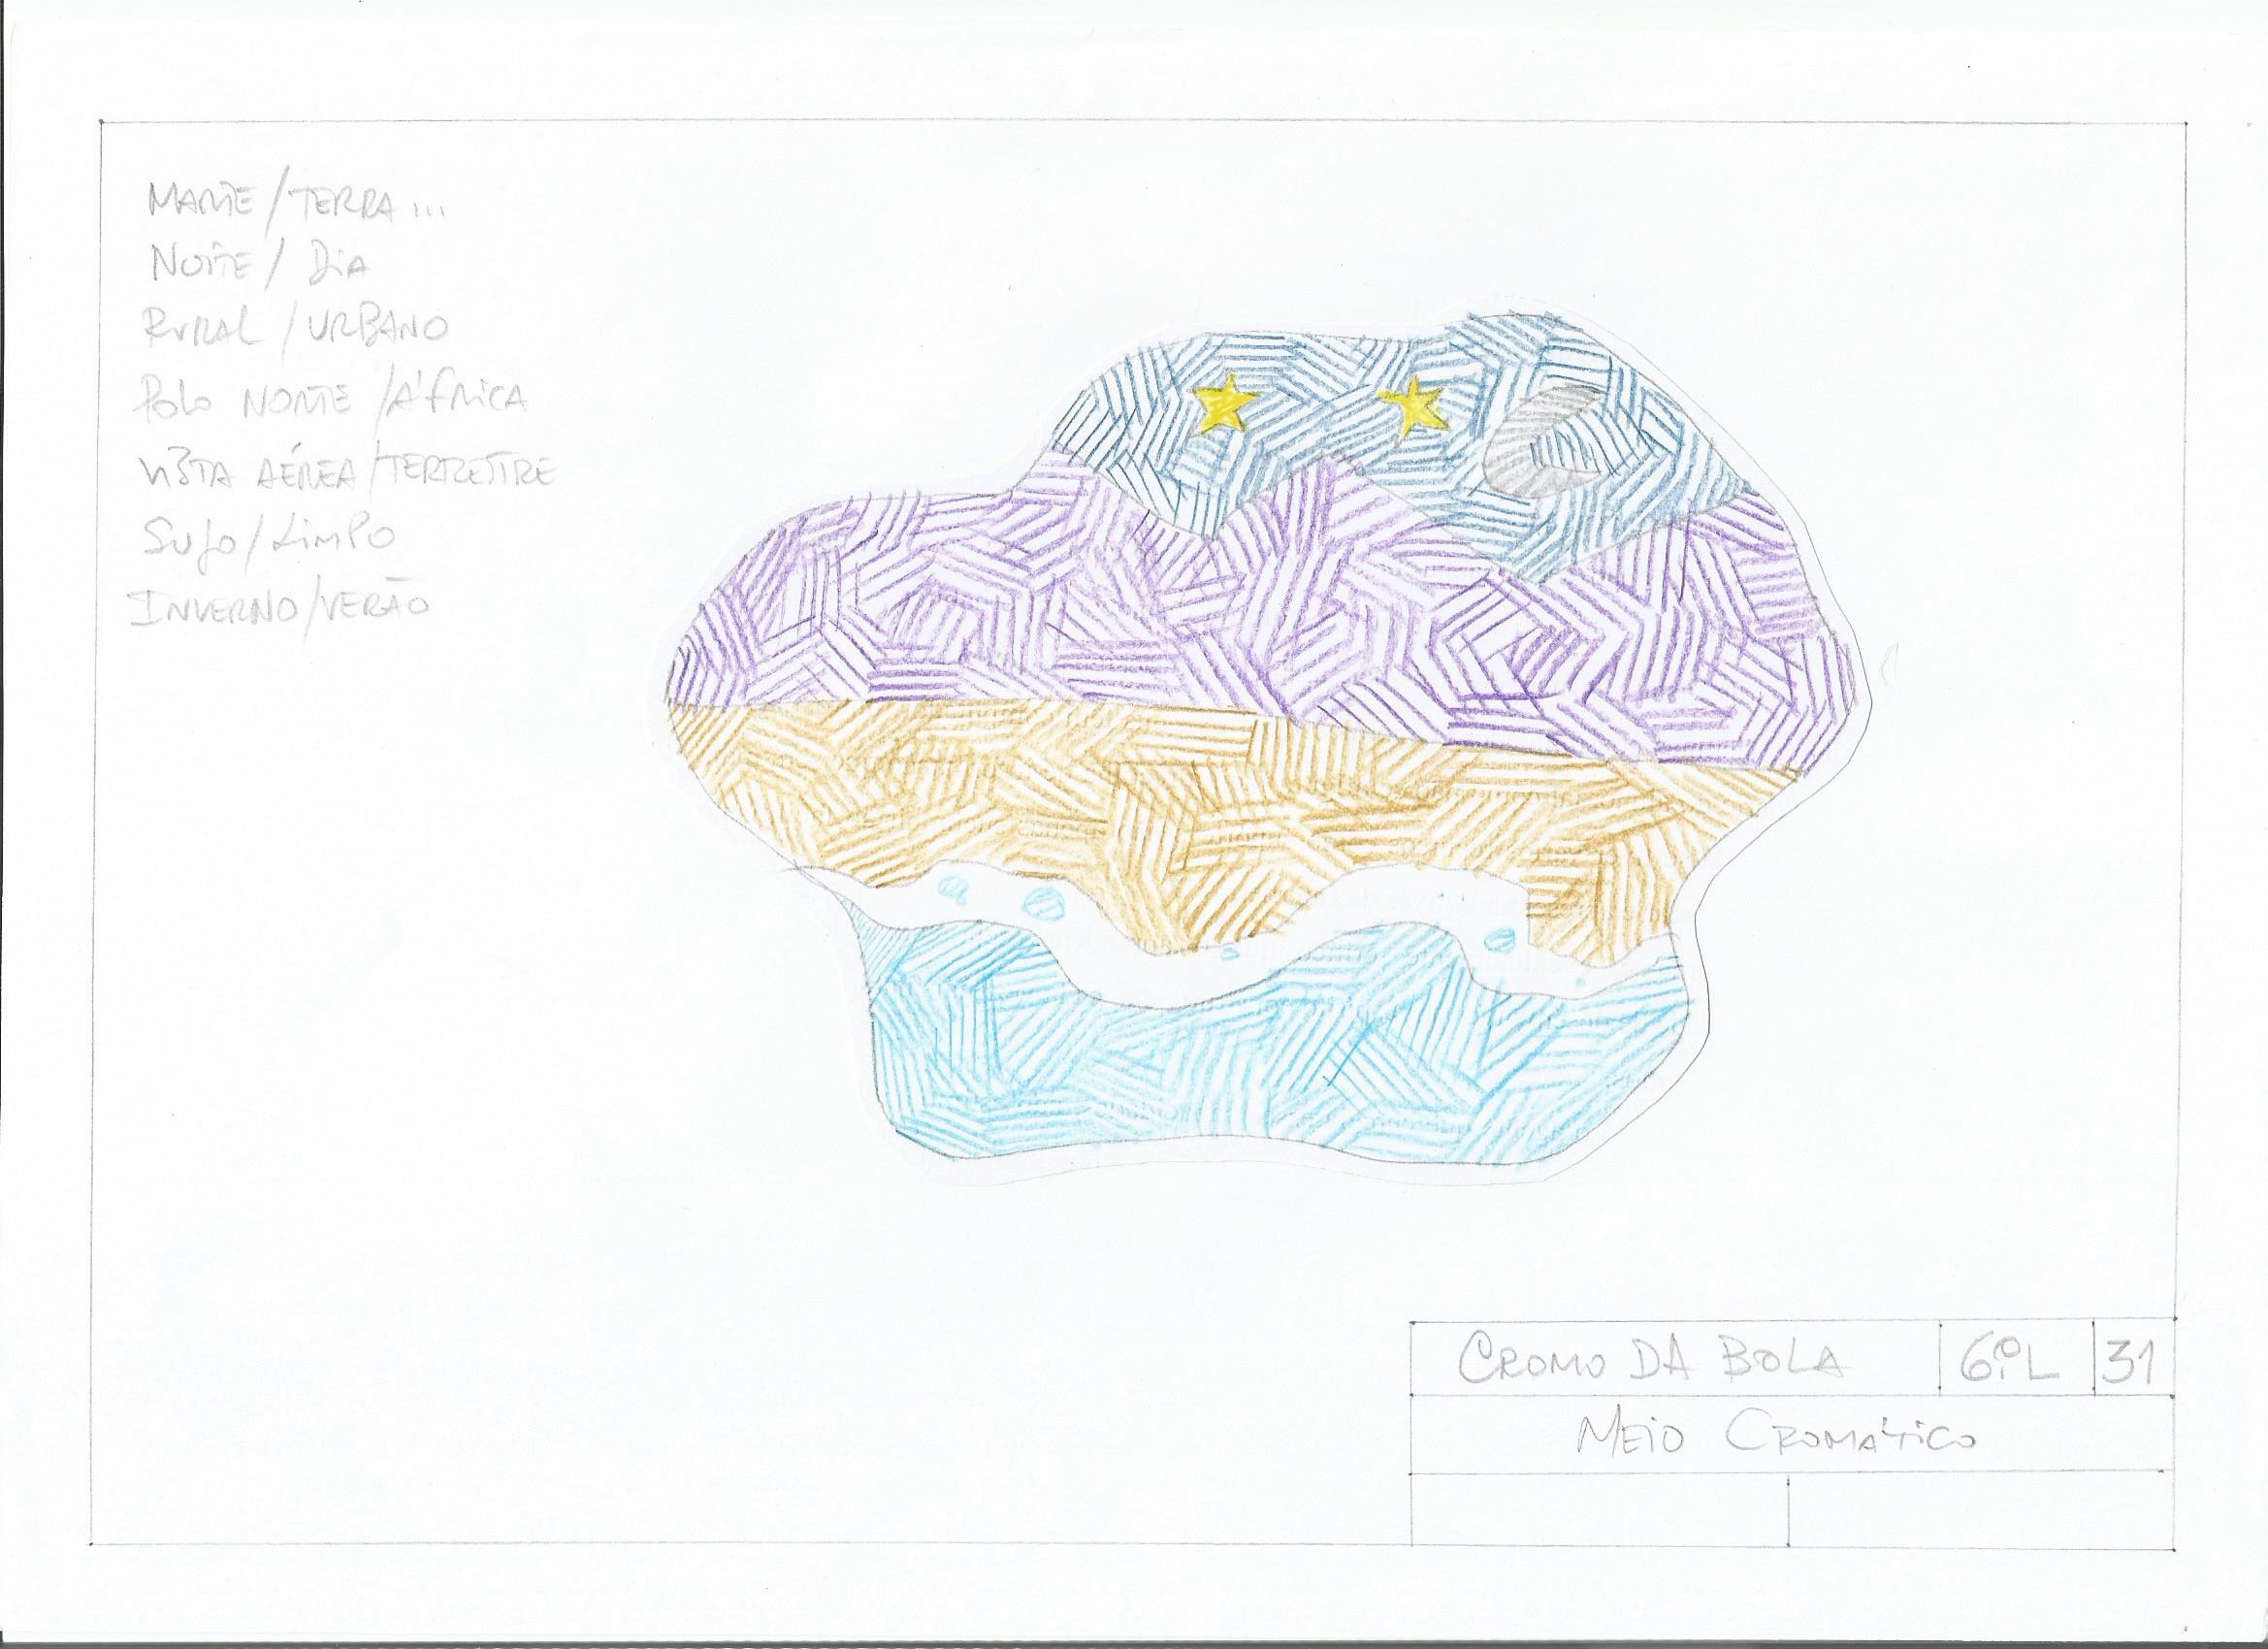 MARTE/TERRA...
NOITE/DiA
RURAL/URBANO
POLO NORTE/ÁfRiCA
ViSTA AÉREA/TERRESTRE
SUJO/LiMPO
INVERNO/VERÃO
CROMO DA BOLA 6ºL 31
MEiO CROMÁTiCO